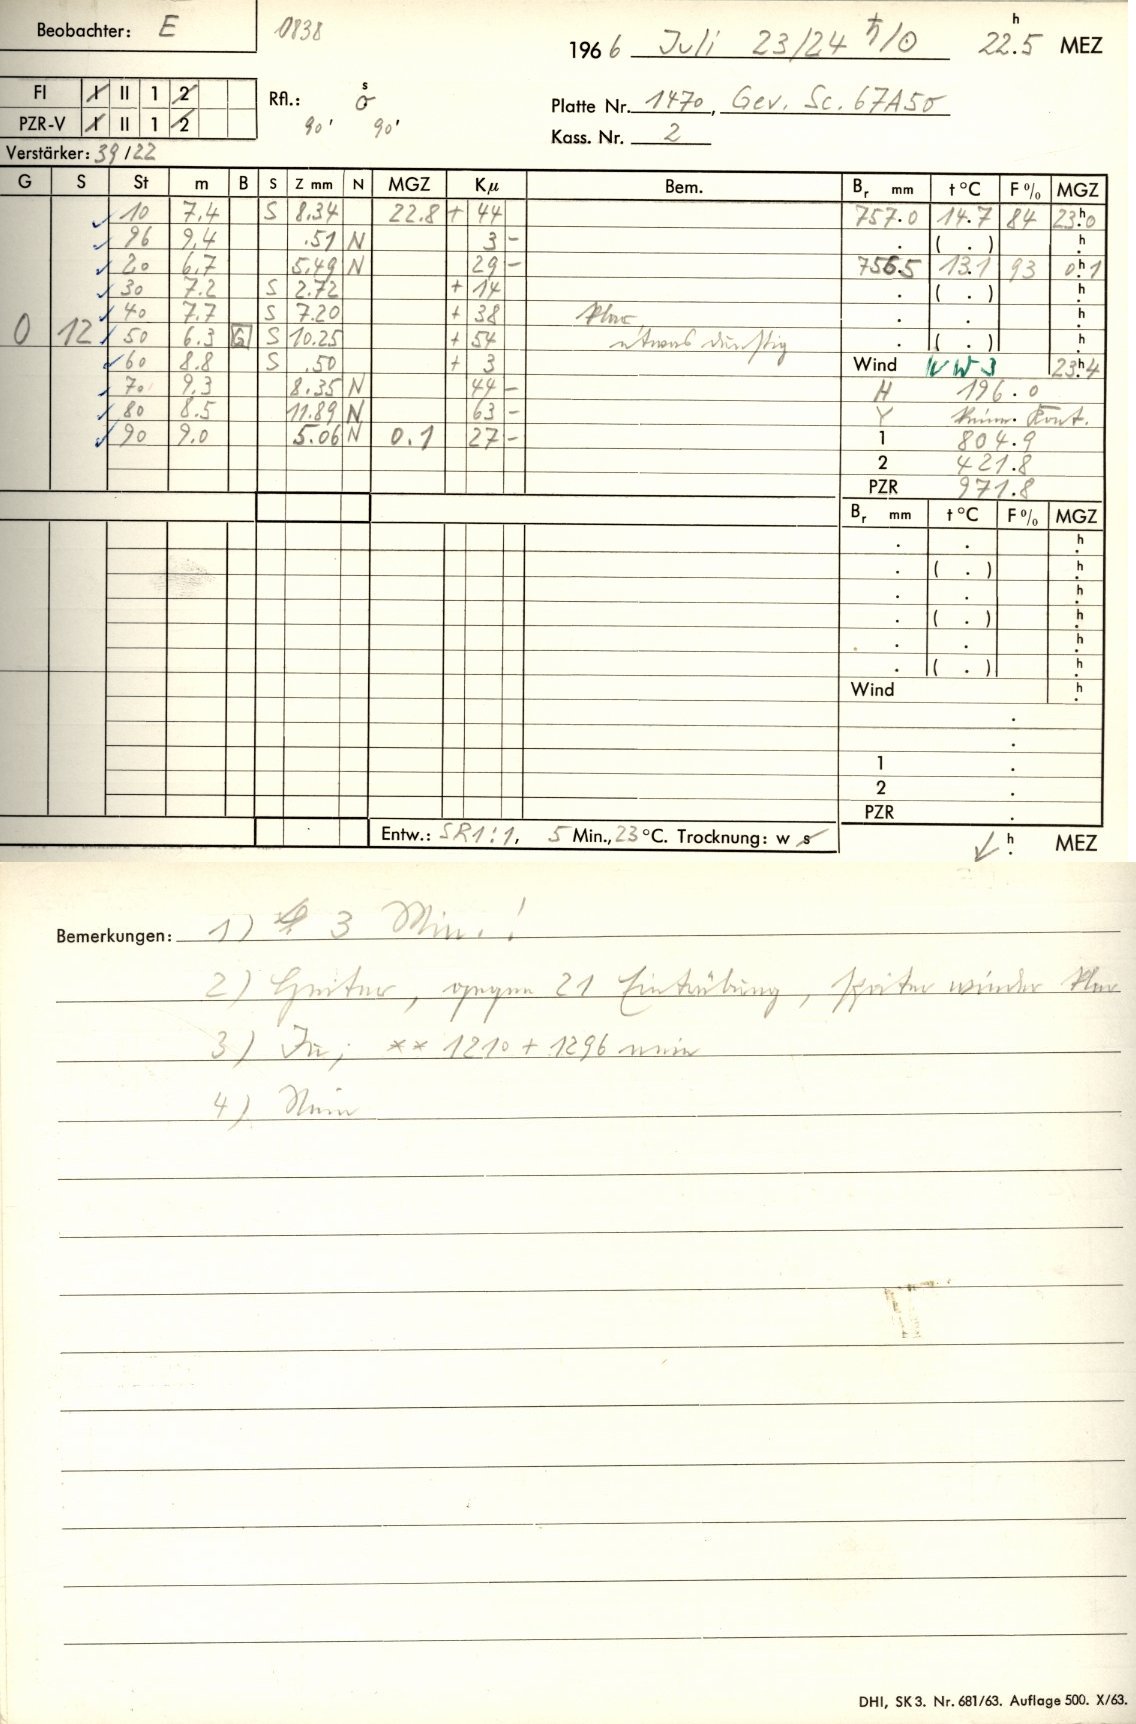 Beobachter: E
0838
1966 Juli 23/24 ♄/☉ 22.5 h MEZ
FI I II 1 2
PZR-V I II 1 2
Rfl.: s
90' 90'
Platte Nr. 1470, Gev. Sc. 67A50
Kass. Nr. 2
Verstärker: 39/22
G S St m B S Z mm N MGZ Kµ Bem. Br mm t °C F % MGZ
10 7.4 S 8.34 22.8 + 44 757.0 14.7 84 23h0
96 9.4 .51 N 3 - . ( . ) h
20 6.7 5.49 N 29 - 756.5 13.1 93 0h1
30 7.2 S 2.72 + 14 . ( . ) h
40 7.7 S 7.20 + 38 klar, . . h
0 12 50 6.3 G S 10.25 + 54 etwas dunstig . ( . ) h
60 8.8 S .50 + 3 Wind NW 3 23h4
70 9.3 8.35 N 44 - H 196.0
80 8.5 11.89 N 63 - Y Kont.
90 9.0 5.06 N 0.1 27 - 1 804.9
2 421.8
PZR 971.8
Br mm t °C F % MGZ
. . h
. ( . ) h
. . h
. ( . ) h
. . h
. ( . ) h
Wind h
.
.
1 .
2 .
PZR .
Entw.: SR1:1, 5 Min., 23 °C. Trocknung: w s
h MEZ
Bemerkungen: 1) 3 Min.!
2) Heiter, gegen 21 Eintrübung, später wieder klar
3) Ja; ** 1210 + 1296 nein
4) Nein
DHI, SK 3. Nr. 681/63. Auflage 500. X/63.